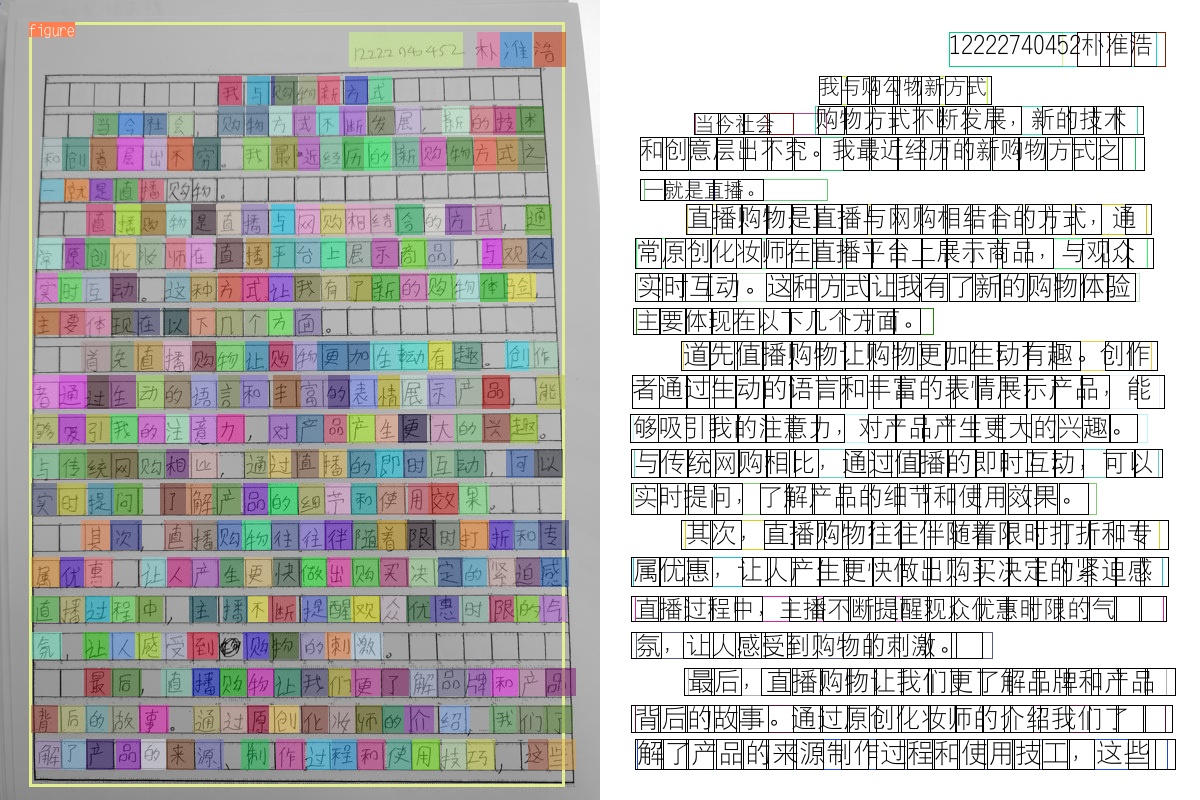 figure
12222740452 朴准浩
我与购物新方式
当今社会，购物方式不断发展，新的技术
和创意层出不穷。我最近经历的新购物方式之
一就是直播购物。
直播购物是直播与网购相结合的方式，通
常原创化妆师在直播平台上展示商品，与观众
实时互动。这种方式让我有了新的购物体验，
主要体现在以下几个方面。
首先直播购物让购物更加生动有趣。创作
者通过生动的语言和丰富的表情展示产品，能
够吸引我的注意力，对产品产生更大的兴趣。
与传统网购相比，通过直播的即时互动，可以
实时提问，了解产品的细节和使用效果。
其次，直播购物往往伴随着限时打折和专
属优惠，让人产生更快做出购买决定的紧迫感。
直播过程中，主播不断提醒观众优惠时限的气
氛，让人感受到购物的刺激。
最后，直播购物让我们更了解品牌和产品
背后的故事。通过原创化妆师的介绍，我们了
解了产品的来源、制作过程和使用技巧，这些
12222740452朴准浩
我与购勾物新方式
当今社会 购物方式不断发展，新的技术
和创意层出不究。我最近经历的新购物方式之
一就是直播。
直播购物是直播与网购相结合的方式，通
常原创化妆师在直播平台上展示商品，与观众
实时互动。这种方式让我有了新的购物体验
主要体现在以下几个方面。
道先值播购物让购物更加生动有趣。创作
者通过生动的语言和丰富的表情展示产品，能
够吸引我的注意力，对产品产生更大的兴趣。
与传统网购相比，通过值播的即时互动，可以
实时提问，了解产品的细节和使用效果。
其次，直播购物往往伴随着限时打折和专
属优惠，让人产生更快做出购买决定的紧迫感
直播过程中，主播不断提醒观众优惠时限的气
氛，让人感受到购物的刺激。
最后，直播购物让我们更了解品牌和产品
背后的故事。通过原创化妆师的介绍我们了
解了产品的来源制作过程和使用技工，这些